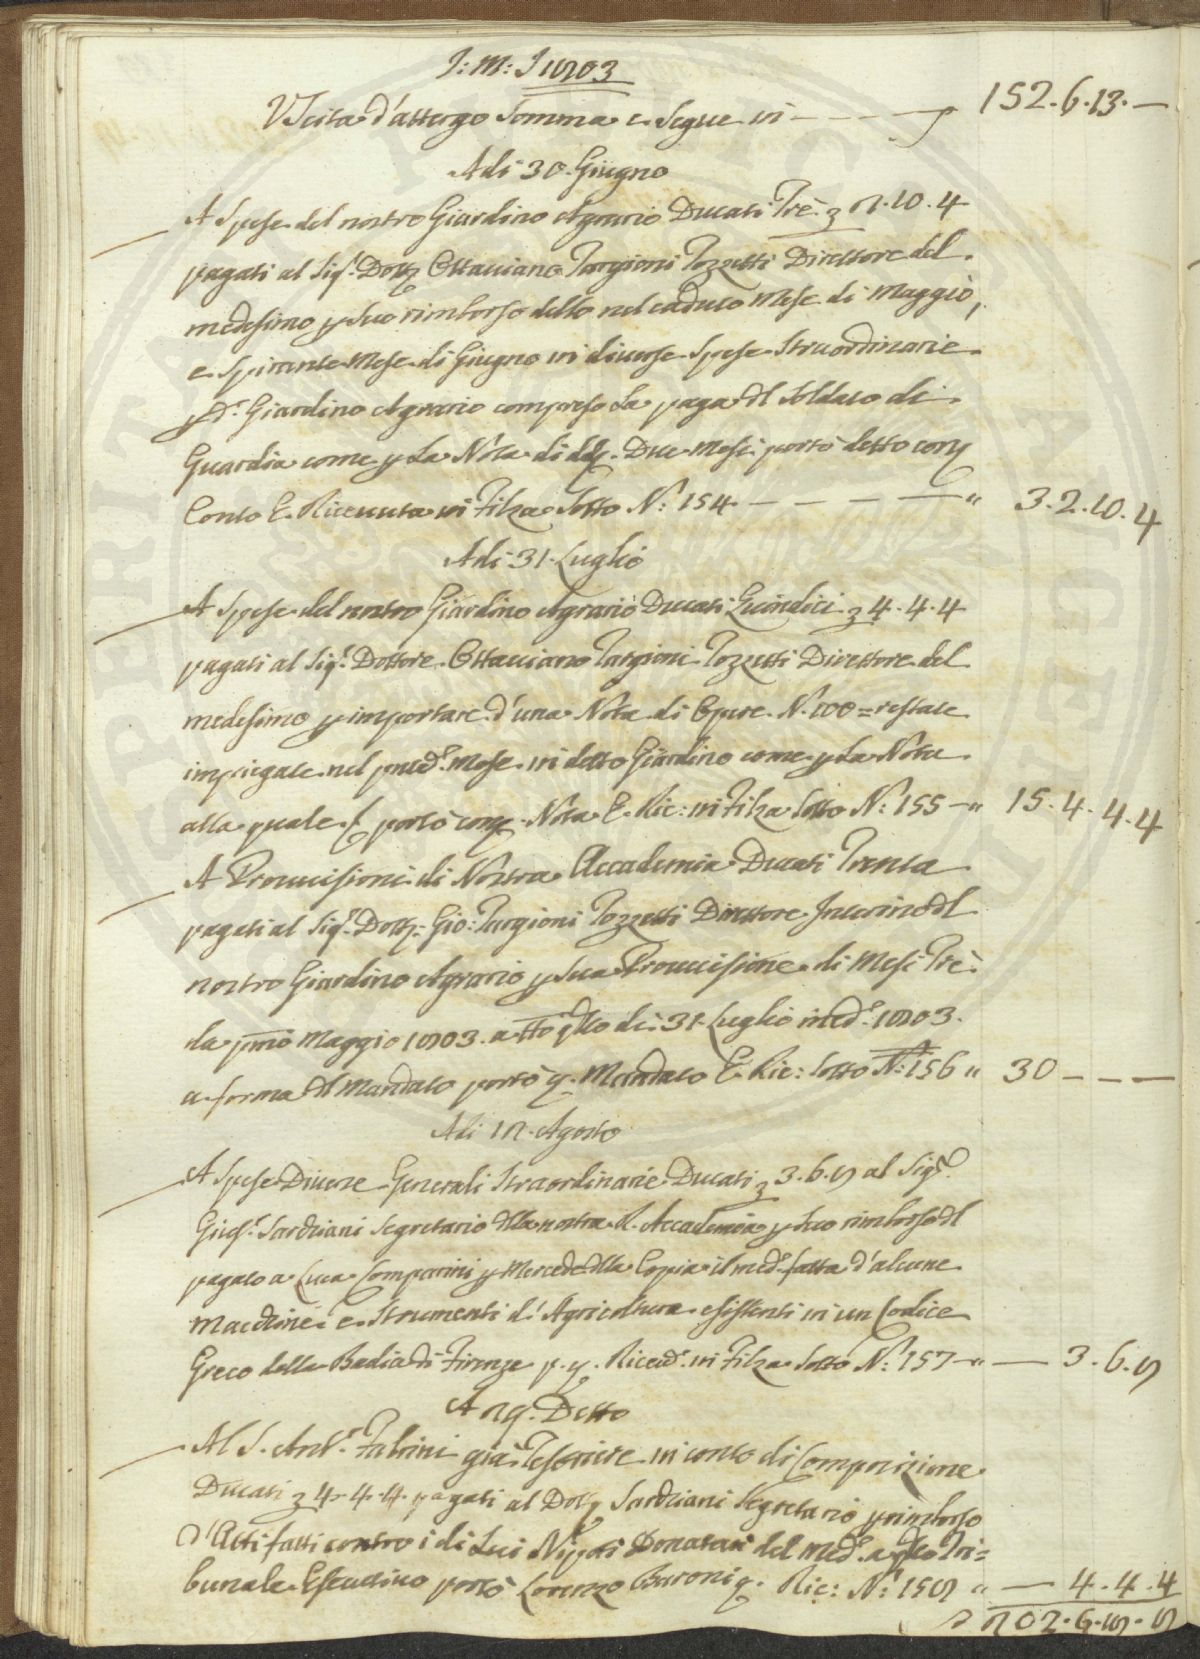 J: M: J 1803
Uscita d'attergo Somma e Segue in — — — — 152.6.13.—
Adi 30 Giugno
A Spese del nostro Giardino Agrario Ducati Trè 2.10.4
pagati al Sig.r Dott.r Ottaviano Targioni Tozzetti Direttore del
medesimo p suo rimborso dello nel caduto Mese di Maggio,
e Spirante Mese di Giugno in diverse Spese Straordinarie
p d.o Giardino Agrario compreso La paga dl Soldato di
Guardia come p La Nota di dd. Due Mesi portò detto con
Conto E. Ricevuta in Filza Sotto N.o 154 — — — — " 3.2.10.4
Adi 31 Luglio
A Spese del nostro Giardino Agrario Ducati Quindici 4.4.4
pagati al Sig.r Dottore Ottaviano Targioni Tozzetti Direttore del
medesimo p importare d'una Nota di Opere N.o 100 = restate
impiegate nel pred.o Mese in detto Giardino come p La Nota
alla quale portò Nota E. Ric: in Filza Sotto N.o 155 — " 15.4.4.4
A Provvisioni di Nostra Accademia Ducati Trenta
pagati al Sig.r Dott.r Gio: Targioni Tozzetti Direttore Interino dl
nostro Giardino Agrario p sua Provvisione di Mesi Trè
da pmo Maggio 1803. a tto qllo di 31 Luglio med.o 1803.
a forma dl Mandato portò q. Mandato E. Ric: Sotto N.o 156 " 30 — — —
Adi 12 Agosto
A Spese Diverse Generali Straordinarie Ducati 3.6.8 al Sig.r
Gius.e Sarchiani Segretario dlla nostra R. Accademia p suo rimborso dl
pagato a Luca Comparini p Mercede dlla Copia il med.o fatta d'alcune
Macchine e Strumenti d'Agricoltura esistenti in un Codice
Greco della Badia di Firenze p. q. Ricev.a in Filza Sotto N.o 157 — " — 3.6.8
Detto
Al S. Ant.o Fabrini già Tesoriere in conto di Composizione
Ducati 4.4.4 pagati al Dott.r Sarchiani Segretario p rimborso
d'Atti fatti contro i di Lui Nipoti Donatari del med.o a qsto Tri=
bunale Esecutivo portò Lorenzo Buroni q. Ric: N.o 158 " — 4.4.4
202.6.8.8